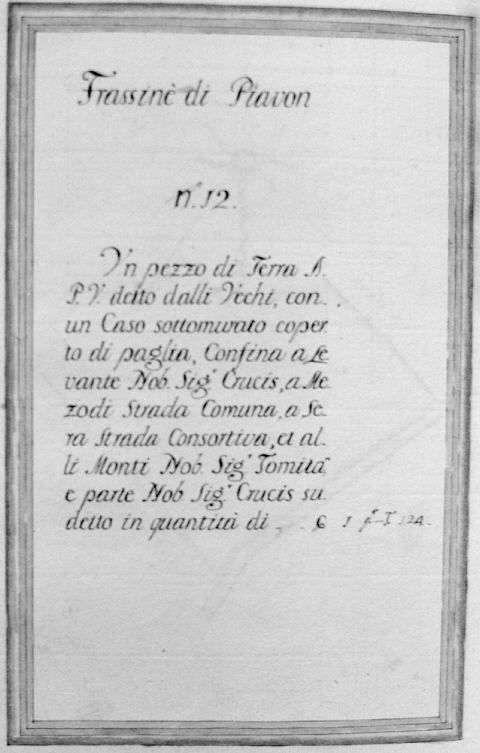 Frassinè di Piavon
n.º 12.
Un pezzo di Terra A.
P. V. detto dalli Vechi, con
un Caso sottomurato coper
to di paglia, Confina a Le
vante Nob. Sig.r Crucis, a Me
zodi Strada Comuna, a Se
ra Strada Consortiva, et al
li Monti Nob. Sig.r Tomità
e parte Nob Sig.r Crucis su
detto in quantità di